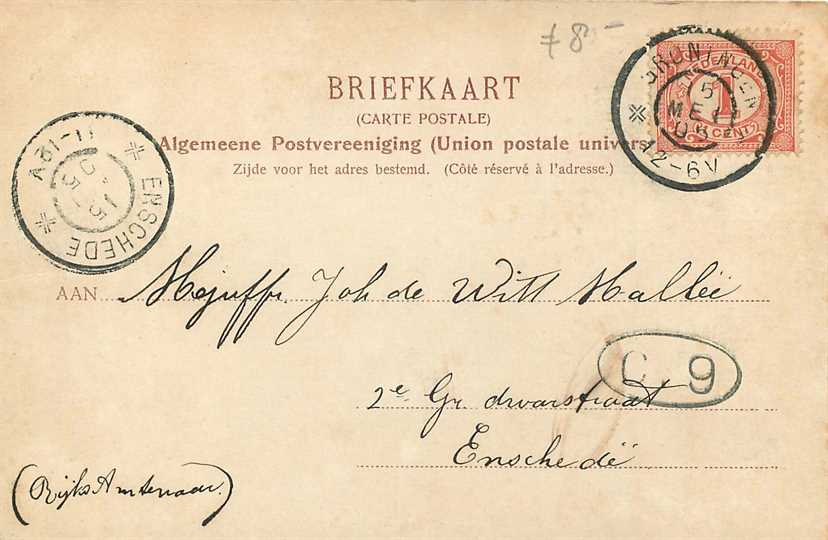 ƒ 8 -
NEDERLAND
1
CENT
GRONINGEN
5
MEI
12-6V
BRIEFKAART
(CARTE POSTALE)
Algemeene Postvereeniging (Union postale univers
Zijde voor het adres bestemd. (Côté réservé à l'adresse.)
ENSCHEDE
11-12V
15
05
AAN Mejuffr. Joh de Witt Hallée
C 9
2e Gr dwarsstraat
Enschede
(Rijks Amtenaar.)